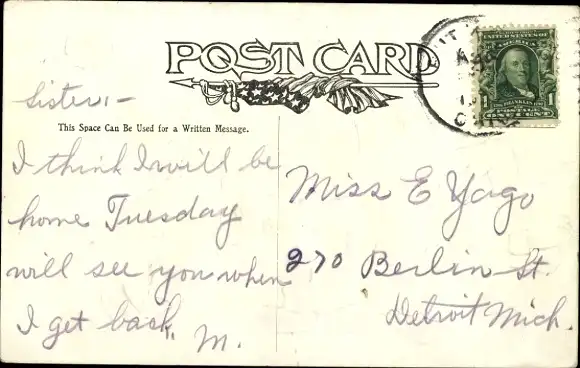 POST CARD
UNITED STATES OF
AMERICA
1 1
FRANKLIN
POSTAGE
ONE CENT
Sister,-
This Space Can Be Used for a Written Message.
I think I will be
home Tuesday
will see you when
I get back.
M.
Miss E Yago
270 Berlin St.
Detroit Mich.